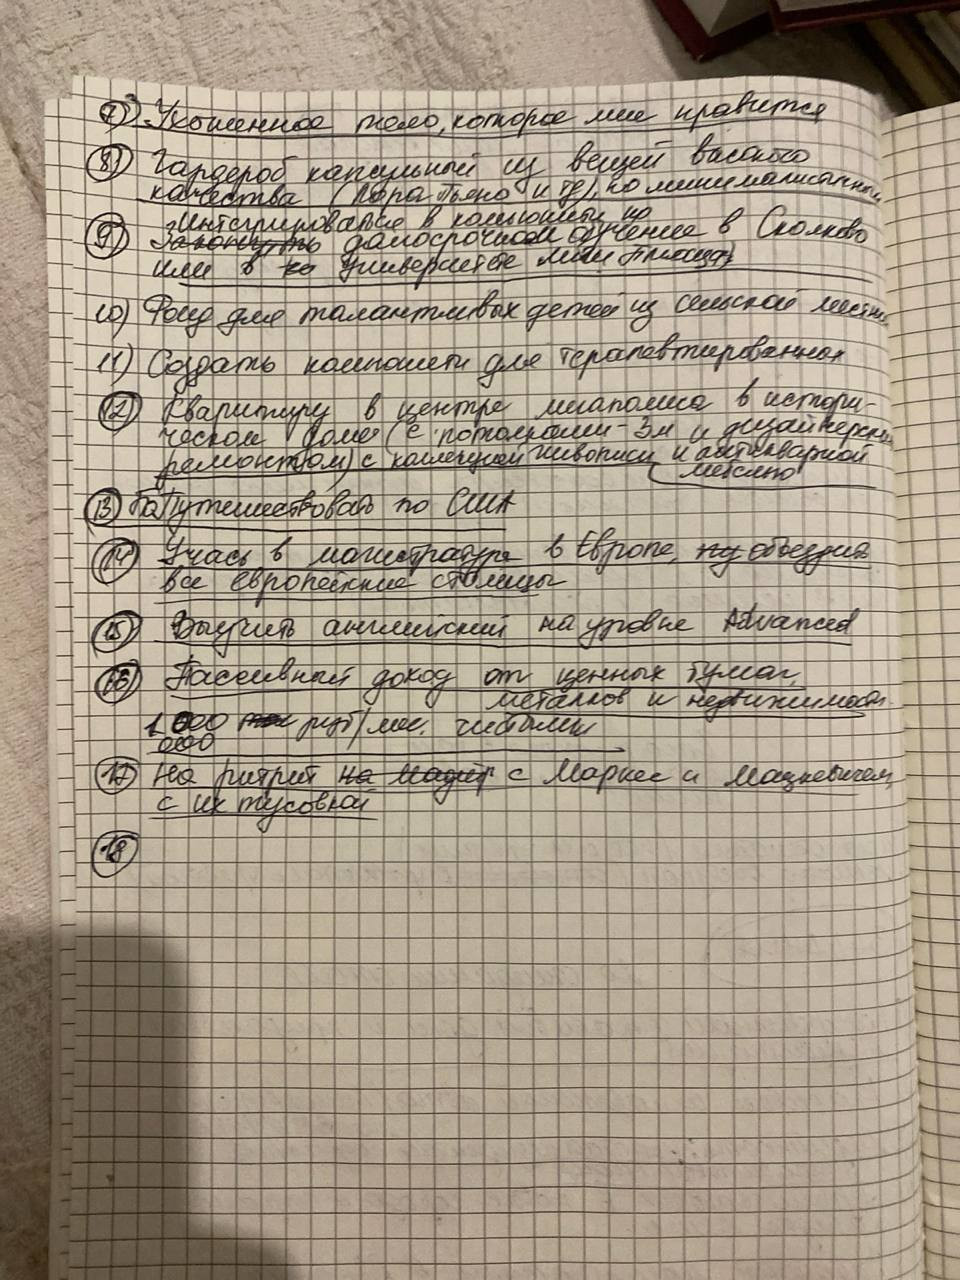 7) Ухоженное тело, которое мне нравится
8) Гардероб капсульный из вещей высокого
качества (Лора Пьяно и тд), но минималистичный
Интегрироваться в комьюнити по
9) Закончить долгосрочном обучение в Сколково
или в университете мини
10) Фонд для талантливых детей из сельской местн
11) Создать комьюнити для терапевтированных
12) Квартиру в центре мегаполиса в истори-
ческом доме (с потолками - 3м и дизайнерским
ремонтом) с коллекцией живописи и антикварной
мебелью
13) Путешествовать по США
14) Учась в магистратуре в Европе, объездив
все европейские столицы
15) Выучить английский на уровне Advanced
16) Пассивный доход от ценных бумаг,
металлов и недвижимости
1 000 руб/мес. чистыми
000
17) На ритрит с Марком и Мацкевичем,
с их тусовкой
18